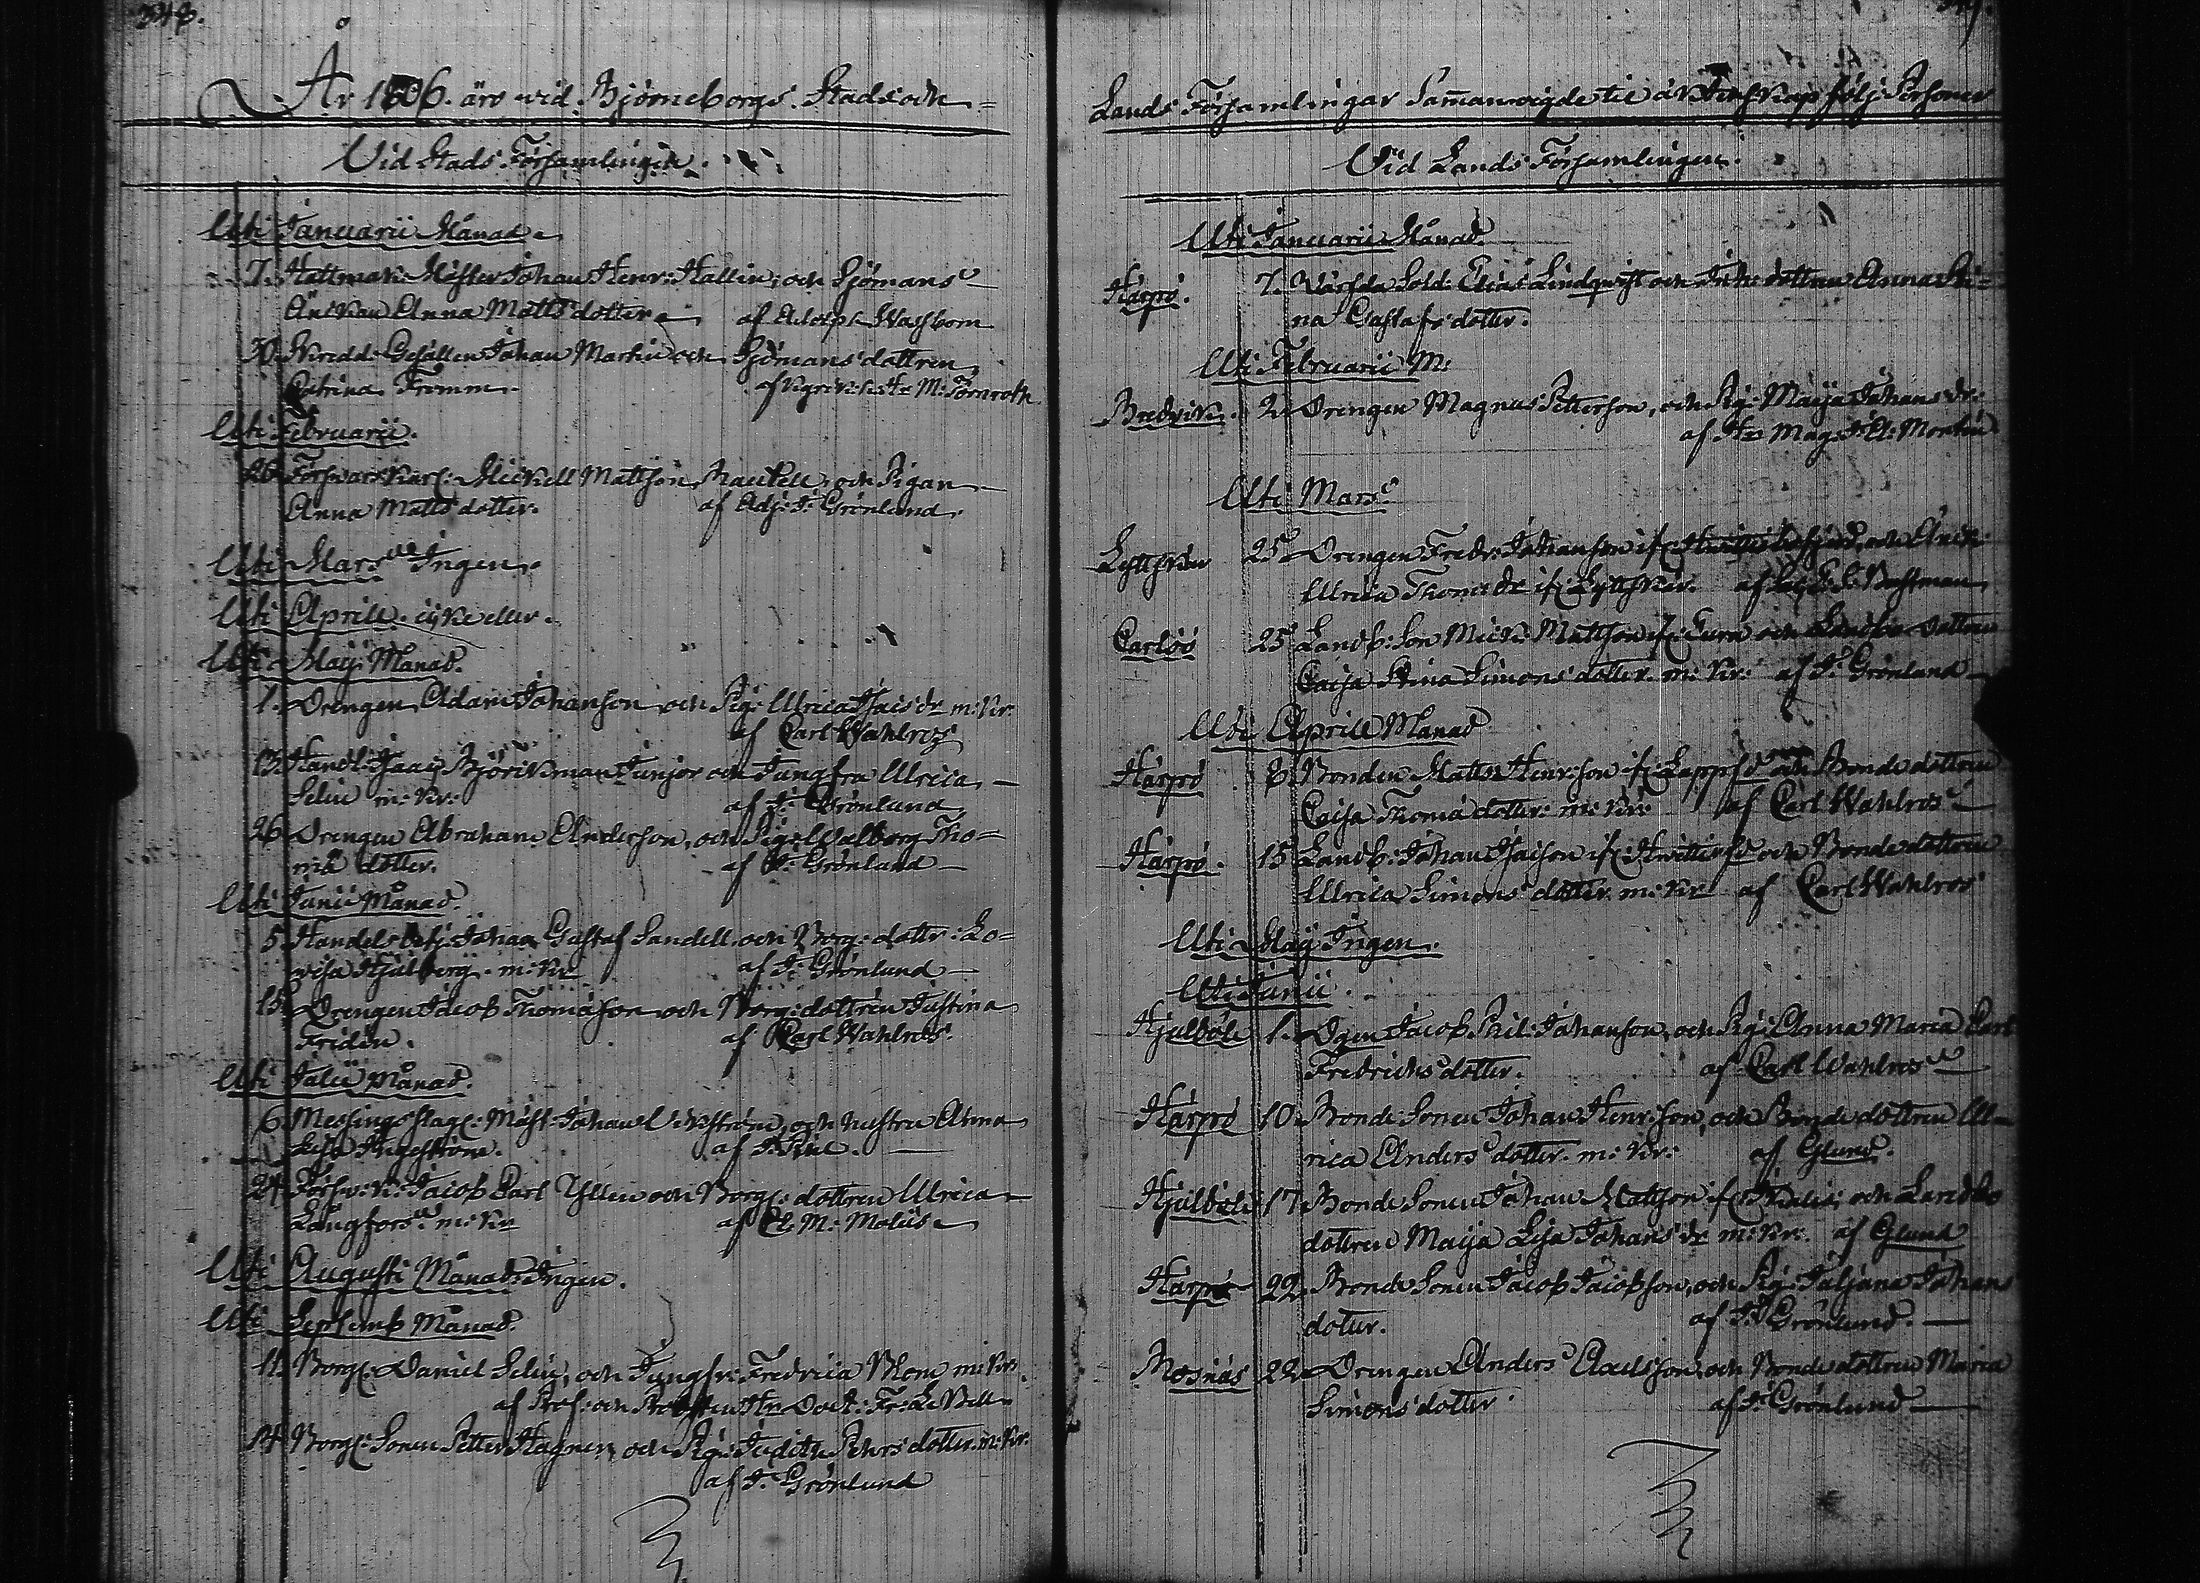 348.
År 1806. äro vid Bjørneborgs Stads och
Vid Stads Församlingen.
Uti Januarii Månad.
7. Hattmak: Mäster Johan Henr: Hallin, och Sjömans
Änkan Anna Matts dotter. af Adolph Wassbom
30. Skredd: Gesällen Johan Martin och Sjömans dottren
Catrina Fromm. af M: Törnroth
Uti Februarii.
26. Försvarskarl: Mickell Mattson och Pigan
Anna Matts dotter. af Adj: J: Grönlund.
Uti Mars Ingen.
Uti Aprill. ej heller.
Uti Maij Månad.
1. Drengen Adam Johanson och Pig: Ulrica Isacs dr m: kr:
af Carl Wahlros
13. Handl: Isaac Björkman Junior och Jungfru Ulrica
Selin m: kr: af J: Grönlund
26. Drengen Abraham Anderson, och Pig: Walborg Tho=
mæ dotter. af J: Grönlund
Uti Junii Månad.
5. Handels betj: Johan Gustaf Sandell och Borg: dotter: Lo=
visa Hjulberg. m: kr af J: Grönlund
15. Drengen Jacob Thomason och Borg: dottren Justina
Fridén. af Carl Wahlros.
Uti Julii Månad.
6. Messings slag: Mäst: Johan och Anna
Lisa af
24. Försv: k: Jacob Carl Yllen och Borg: dottren Ulrica
Långfors m: kr af C. M: Moliis
Uti Augusti Månad Ingen.
Uti Septemb Månad.
11. Borg: Daniel Selin, och Jungfr: Fredrica Blom m: kr:
af Prof: och Probsten Hr Doct: Fr: Le Bell
14. Borg: Sonen Petter Hagner, och Pig: Judith Pehrs dotter. m: kr:
af J: Grönlund
349.
Lands Församlingar Samman vigde til äktenskap följ: Personer
Vid Lands Församlingen.
Uti Januarii Månad.
Harpö. 7. Värfda Sold: Elias Lindqvist och dottren Anna Sti=
na Gustafs dotter.
Uti Februarii M:
Bredvik. 2. Drengen Magnus Petterson, och Pig: Maija Johans dr:
af Hr Mag:
Uti Mars
Lyttskär 25. Drengen Fredr: Johanson och Änk:
Ulrica Thom: dr ifr: Lyttskär. af
Carlsö 25. Landb: Son Mick: Mattson ifr: Eura och dottren
Caisa Stina Simons dotter. m: kr: af J: Grönlund
Uti Aprill Månad
Harpö 8. Bonden Matts Henr: son ifr: och Bonde dottren
Caisa Thomæ dotter. m: kr: af Carl Wahlros
Harpö. 15. Landb: Johan Isacson ifr: och Bonde dottren
Ulrica Simons dotter. m: kr af Carl Wahlros
Uti Maij Ingen.
Uti Junii.
Hjulböle 1. Dgen Jacob Phil: Johanson, och Pig: Anna Maria Carl
Fredrichs dotter. af Carl Wahlros
Harpö 10. Bonde Sonen Johan Henr: son, och Bonde dottren Ul=
rica Anders dotter. m: kr: af Glund.
Hjulböle 17. Bonde Sonen Johan Matson ifr: och Landbo
dottren Maija Lisa Johans dr m: kr: af Glund
Harpö 22. Bonde Sonen Jacob Jacobson, och Pig: Juljana Johans
dotter. af J: Grönlund.
Mosnäs 22. Drengen Anders Axelson, och Bonde dottren Maria
Simons dotter. af J: Grönlund